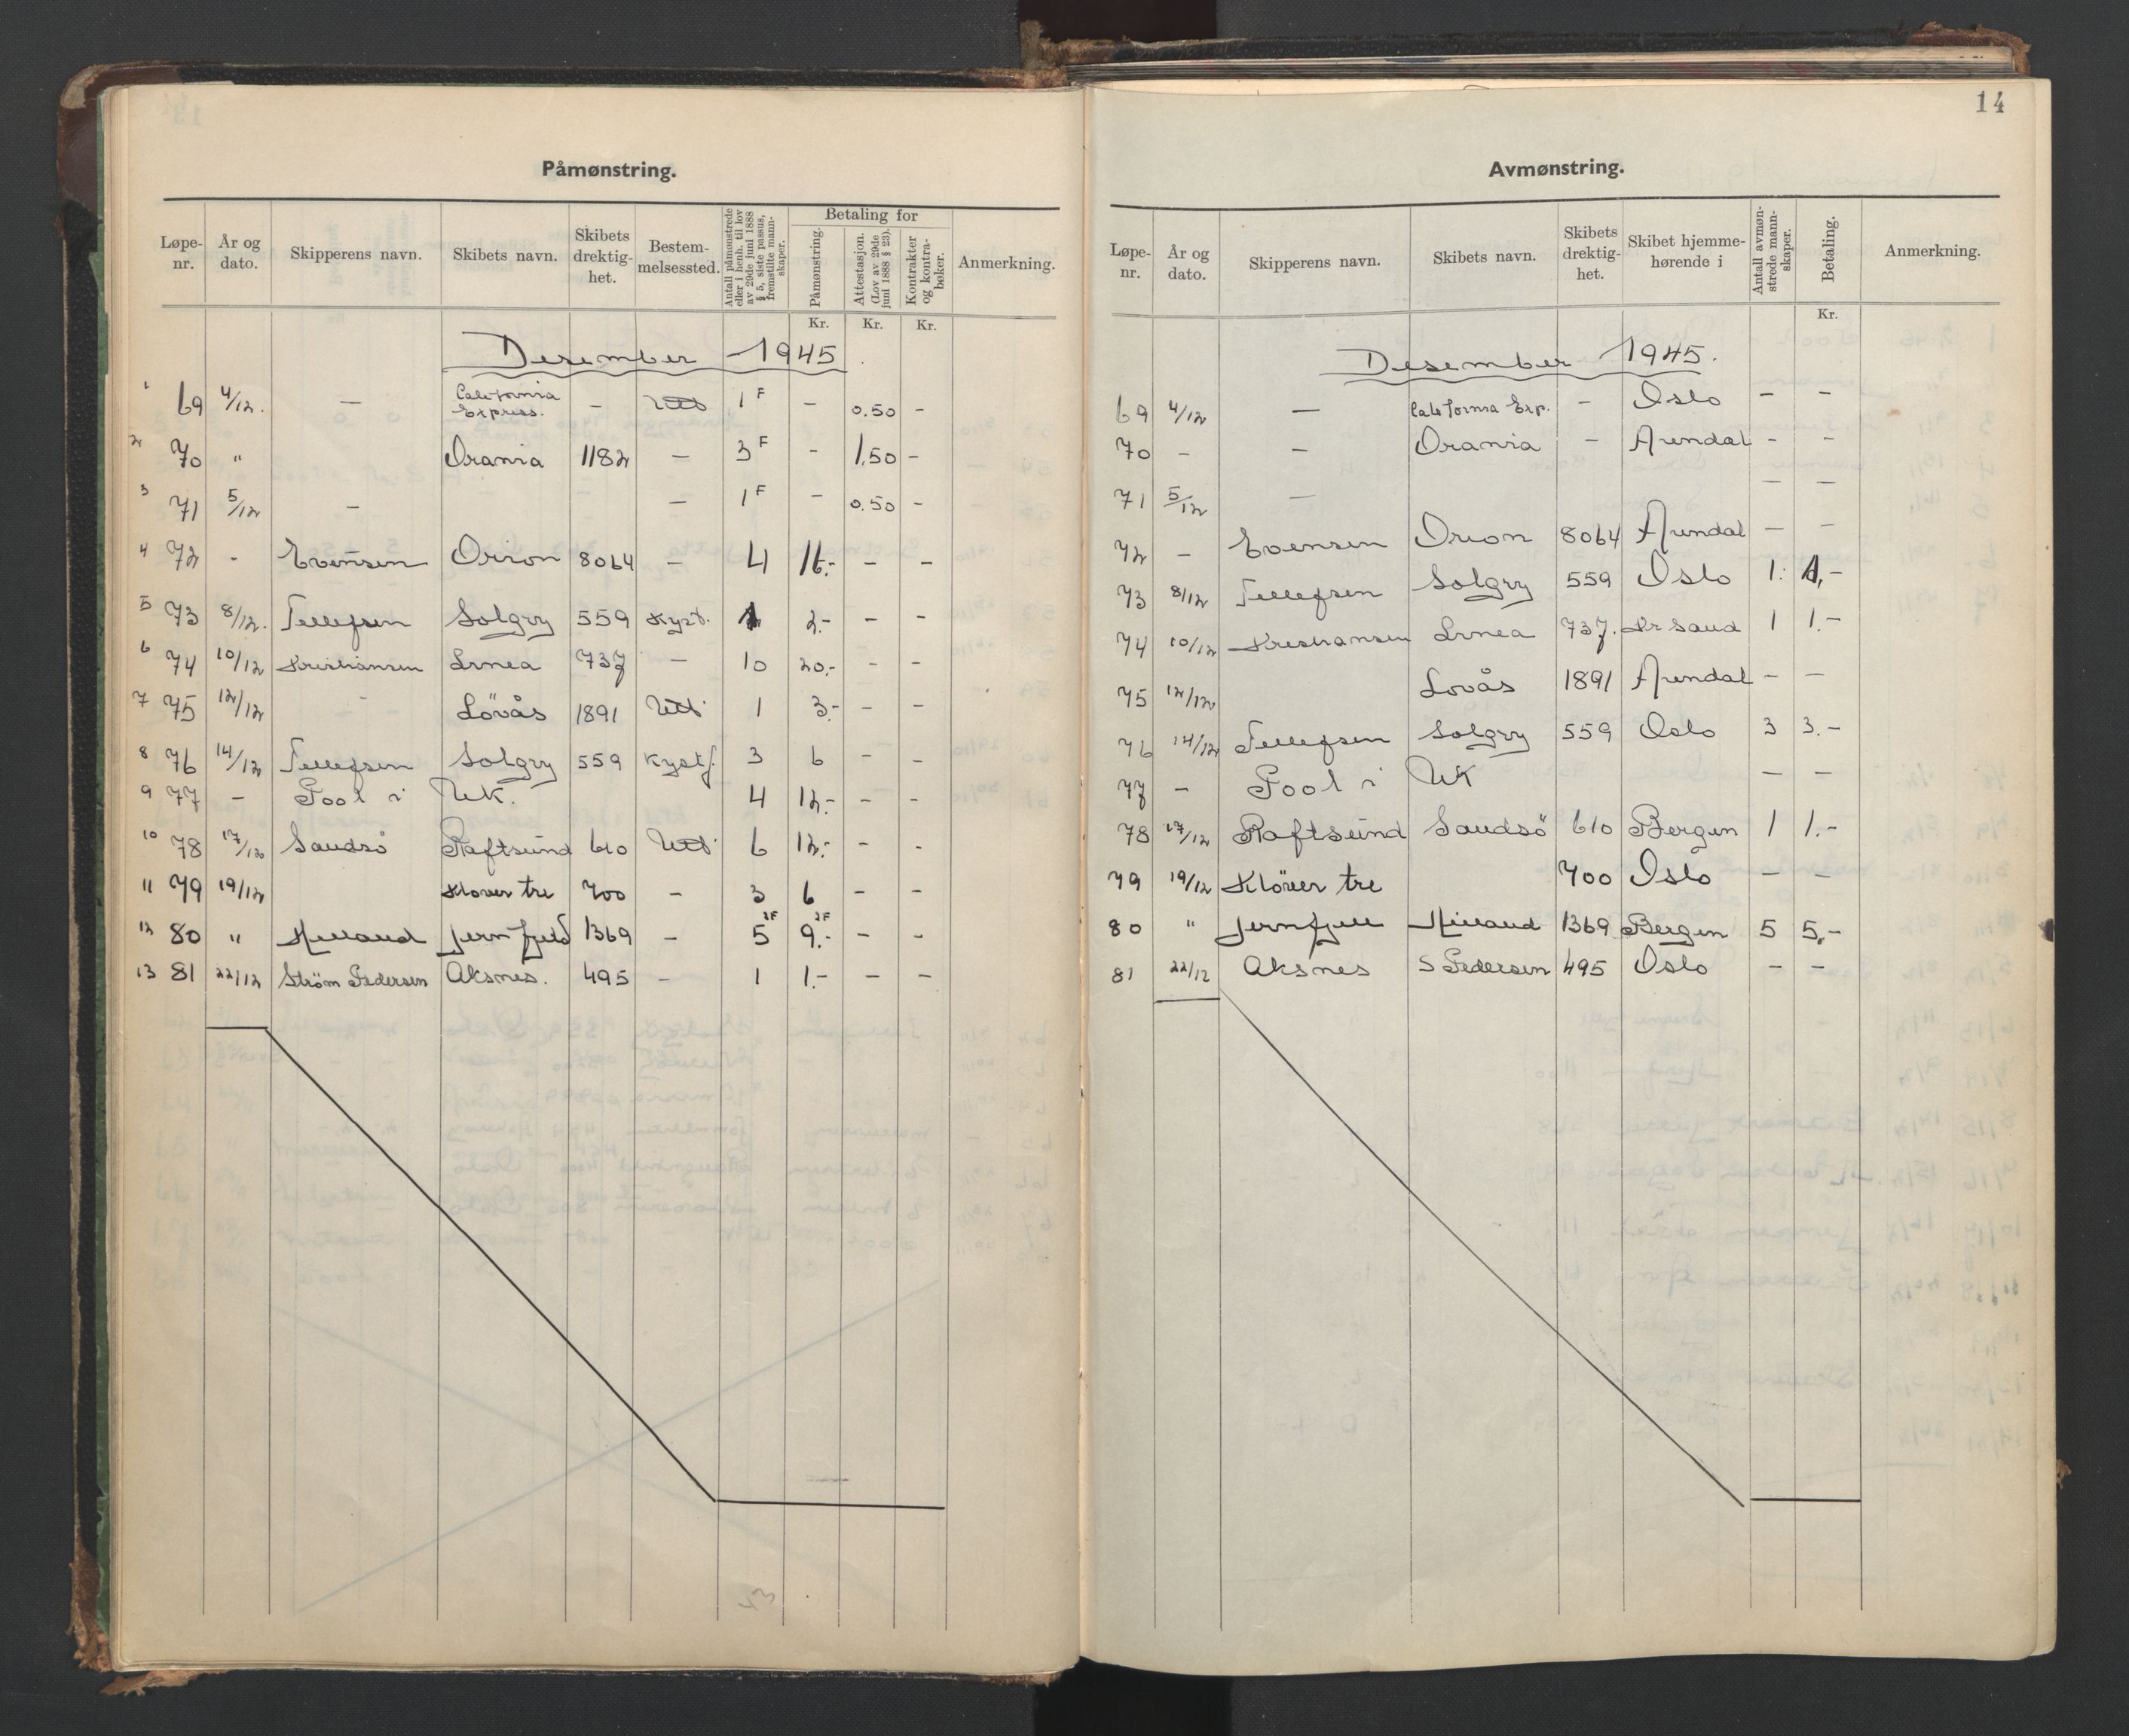 Påmønstring.
Løpe-nr. År og dato. Skipperens navn. Skibets navn. Skibets drektig-het. Bestem-melsessted. Antall påmønstrede eller i henh. til lov av 29de juni 1888 § 5, siste passus, fremstilte mann-skaper. Betaling for Påmønstring. Attestasjon. (Lov av 29de juni 1888 § 23). Kontrakter og kontra-bøker. Anmerkning.
Kr. Kr. Kr.
Desember 1945
1 69 4/12. — California Express. — Utl 1 F - 0.50 -
2 70 " Orania 1182 — 3 F - 1.50 -
3 71 5/12 — — 1 F - 0.50 -
4 72 - Evensen Orion 8064 — 4 16.- - -
5 73 8/12. Tellefsen Solgry 559 Kyst. 1 2.- - -
6 74 10/12 Kristiansen Linea 737 — 10 20.- - -
7 75 12/12 - Lövås 1891 Utl. 1 3.- - -
8 76 14/12 Tellefsen Solgry 559 Kystf. 3 6 - -
9 77 - Pool i UK. 4 12.- - -
10 78 17/12 Sandsö Raftsund 610 Utl. 6 12.- - -
11 79 19/12 Klöver tre 700 - 3 6 - -
12 80 " Helland Jernfjeld 1369 - 5 2F 9.- 2F - -
13 81 22/12 Ström Pedersen Aksnes. 495 - 1 1.- - -
14
Avmønstring.
Løpe-nr. År og dato. Skipperens navn. Skibets navn. Skibets drektig-het. Skibet hjemme-hørende i Antall avmøn-strede mann-skaper. Betaling. Anmerkning.
Kr.
Desember 1945.
69 4/12 — California Exp. - Oslo - -
70 - - Orania - Arendal - -
71 5/12 — - -
72 - Evensen Orion 8064 Arendal - -
73 8/12 Tellefsen Solgry 559 Oslo 1. 1,-
74 10/12 Kristiansen Linea 737. Kr sand 1 1.-
75 12/12 Lovås 1891 Arendal - -
76 14/12 Tellefsen Solgry 559 Oslo 3 3.-
77 - Pool i UK - -
78 17/12 Raftsund Sandsö 610 Bergen 1 1.-
79 19/12 Klöver tre 700 Oslo - -
80 " Jernfjell Helland 1369 Bergen 5 5,-
81 22/12 Aksnes S Pedersen 495 Oslo - -